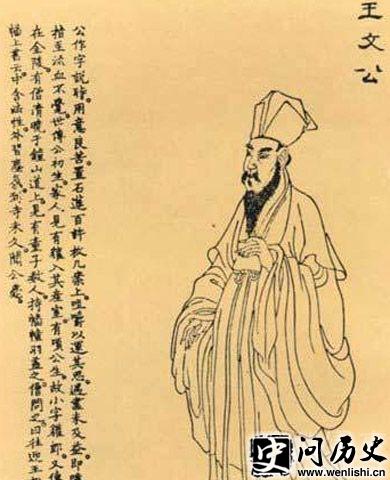 王文公
公作字説時。用意良苦。置石蓮百許枚几案上。咀嚼以運其思。遇盡未及益。即嚙
指至流血不覺。世傳公初生。家人見有獾入其産室。有頃公生。故小字獾郎。又傳
在金陵。有僧清曉于鐘山道上。見有童子數人。持幡幢羽蓋之。僧問之。曰往迎王
幡上書云。中含法性。外習塵氛。到寺未久。聞公薨。
史问历史
www.wenlishi.cn